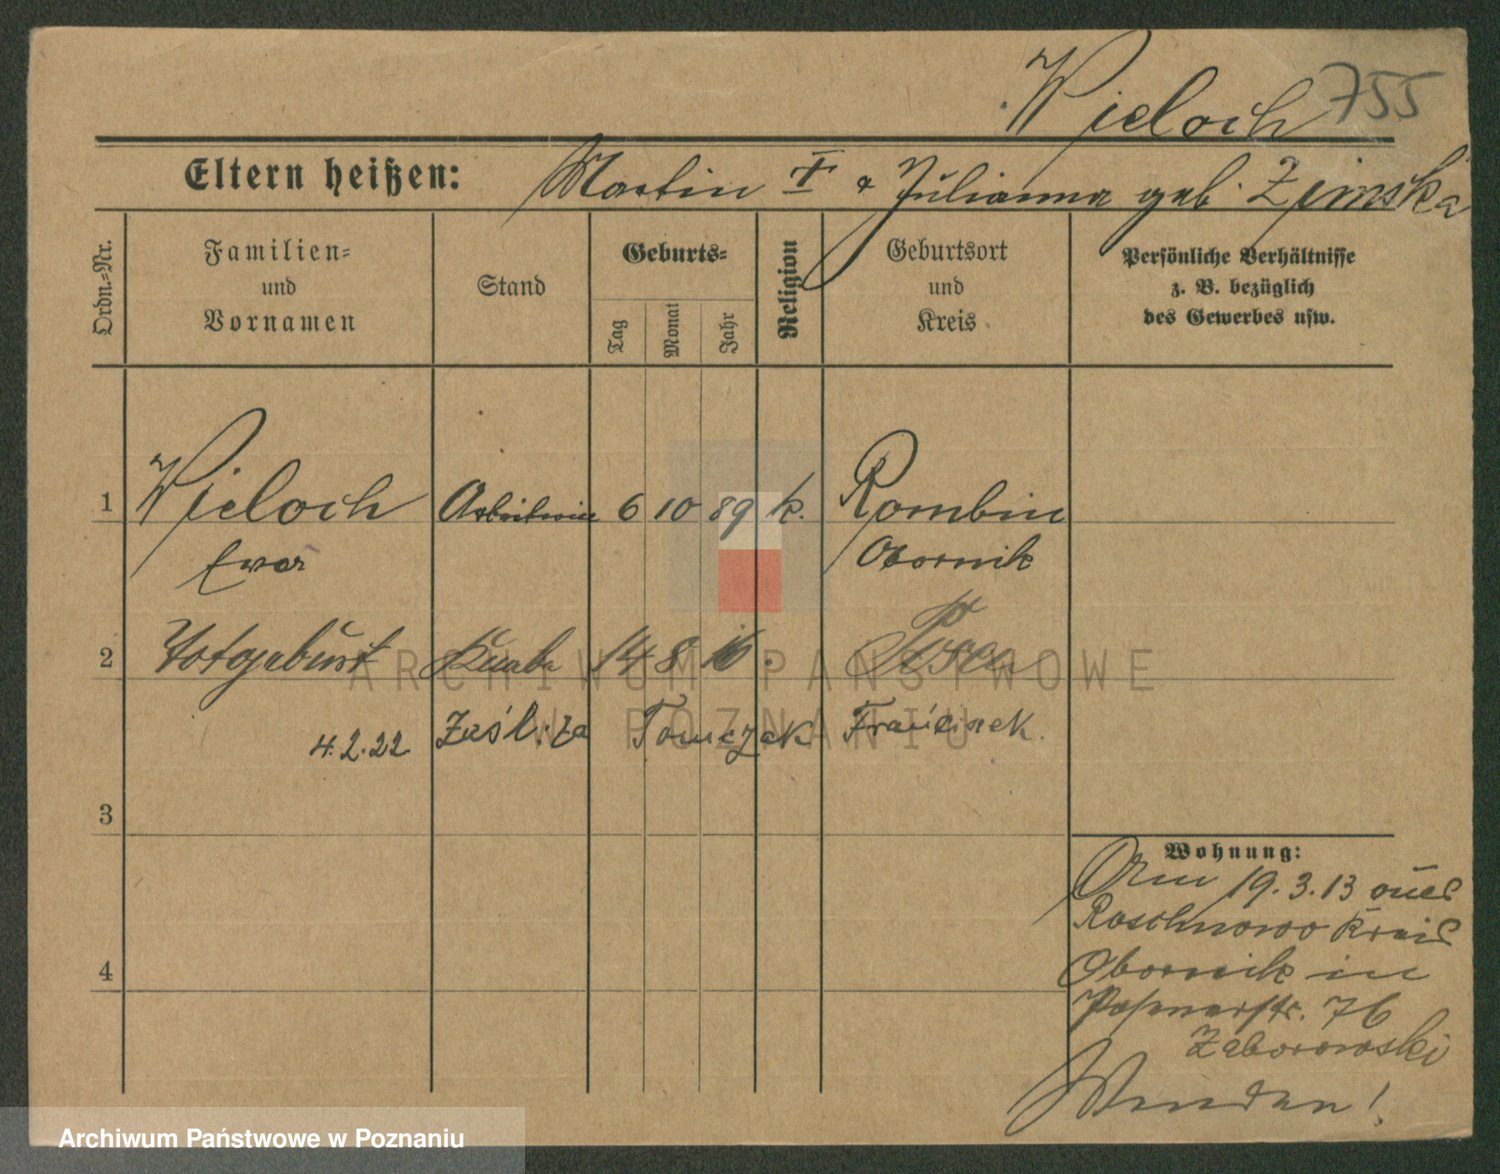 Wieloch 755
Eltern heißen: Martin † & Julianna geb. Zimska
Ordn.-Nr.
Familien-
und
Vornamen
Stand
Geburts-
Tag
Monat
Jahr
Religion
Geburtsort
und
Kreis
Persönliche Verhältnisse
z. B. bezüglich
des Gewerbes usw.
1 Wieloch Arbeiterin 6 10 89 k. Rombin
Ewa Obornik
2 Totgeburt Knabe 14 8 16. Posen
4.2.22 Zaśl: za Tomczak Franciszek.
3
4
Wohnung:
Am 19.3.13 aus
Roschnowo Kreis
Obornik in
Posenerstr. 76
Zaborowski
Wenden!
ARCHIWUM PAŃSTWOWE
W POZNANIU
Archiwum Państwowe w Poznaniu